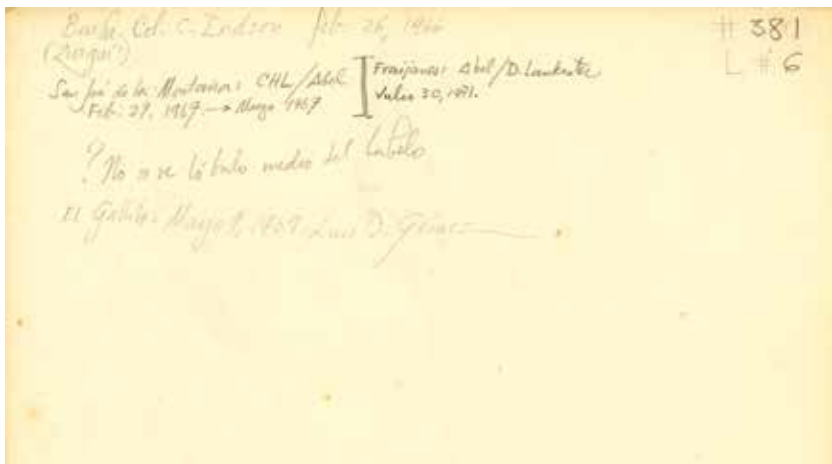 Col. C. Feb. 26, 1966
# 381
(Zurquí)
L # 6
San José de la Montaña: CHL/Abel
Feb. 27, 1967 → Mayo 1967
Fraijanes: Abel/D. Lankester
Julio 30, 1971.
? No se ve lóbulo medio del labelo
El Gallito: Mayo 9, 1969 Luis D. Gómez